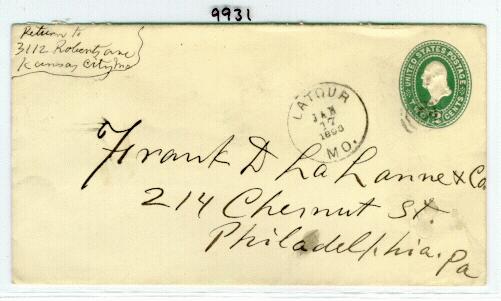 9931
Return to
3112 Roberts ave
Kansas City Mo
UNITED STATES POSTAGE
TWO CENTS
2
LATOUR
JAN
17
MO.
Frank D La Lanne & Co
214 Chesnut St.
Philadelphia. Pa